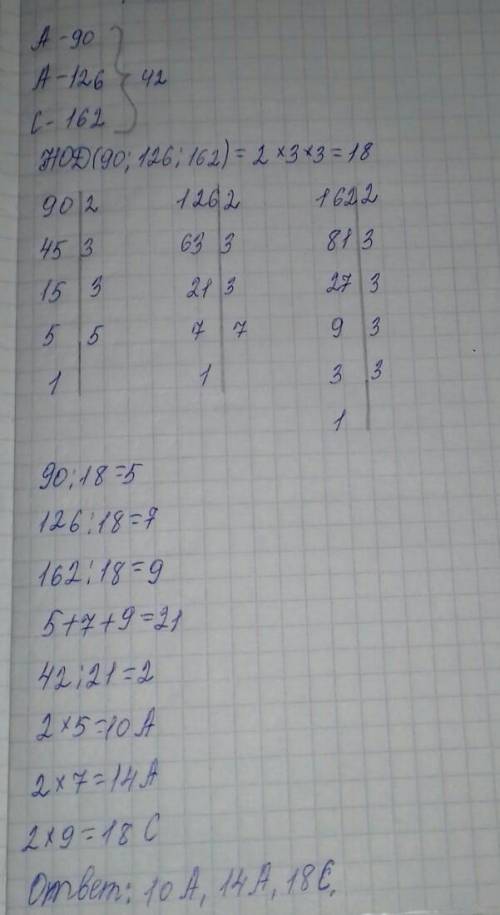 А - 90
А - 126 } 42
С - 162
НОД(90; 126; 162) = 2 × 3 × 3 = 18
90 | 2 126 | 2 162 | 2
45 | 3 63 | 3 81 | 3
15 | 3 21 | 3 27 | 3
5 | 5 7 | 7 9 | 3
1 | 1 | 3 | 3
1 |
90 : 18 = 5
126 : 18 = 7
162 : 18 = 9
5 + 7 + 9 = 21
42 : 21 = 2
2 × 5 = 10 А
2 × 7 = 14 А
2 × 9 = 18 С
Ответ: 10 А, 14 А, 18 С.